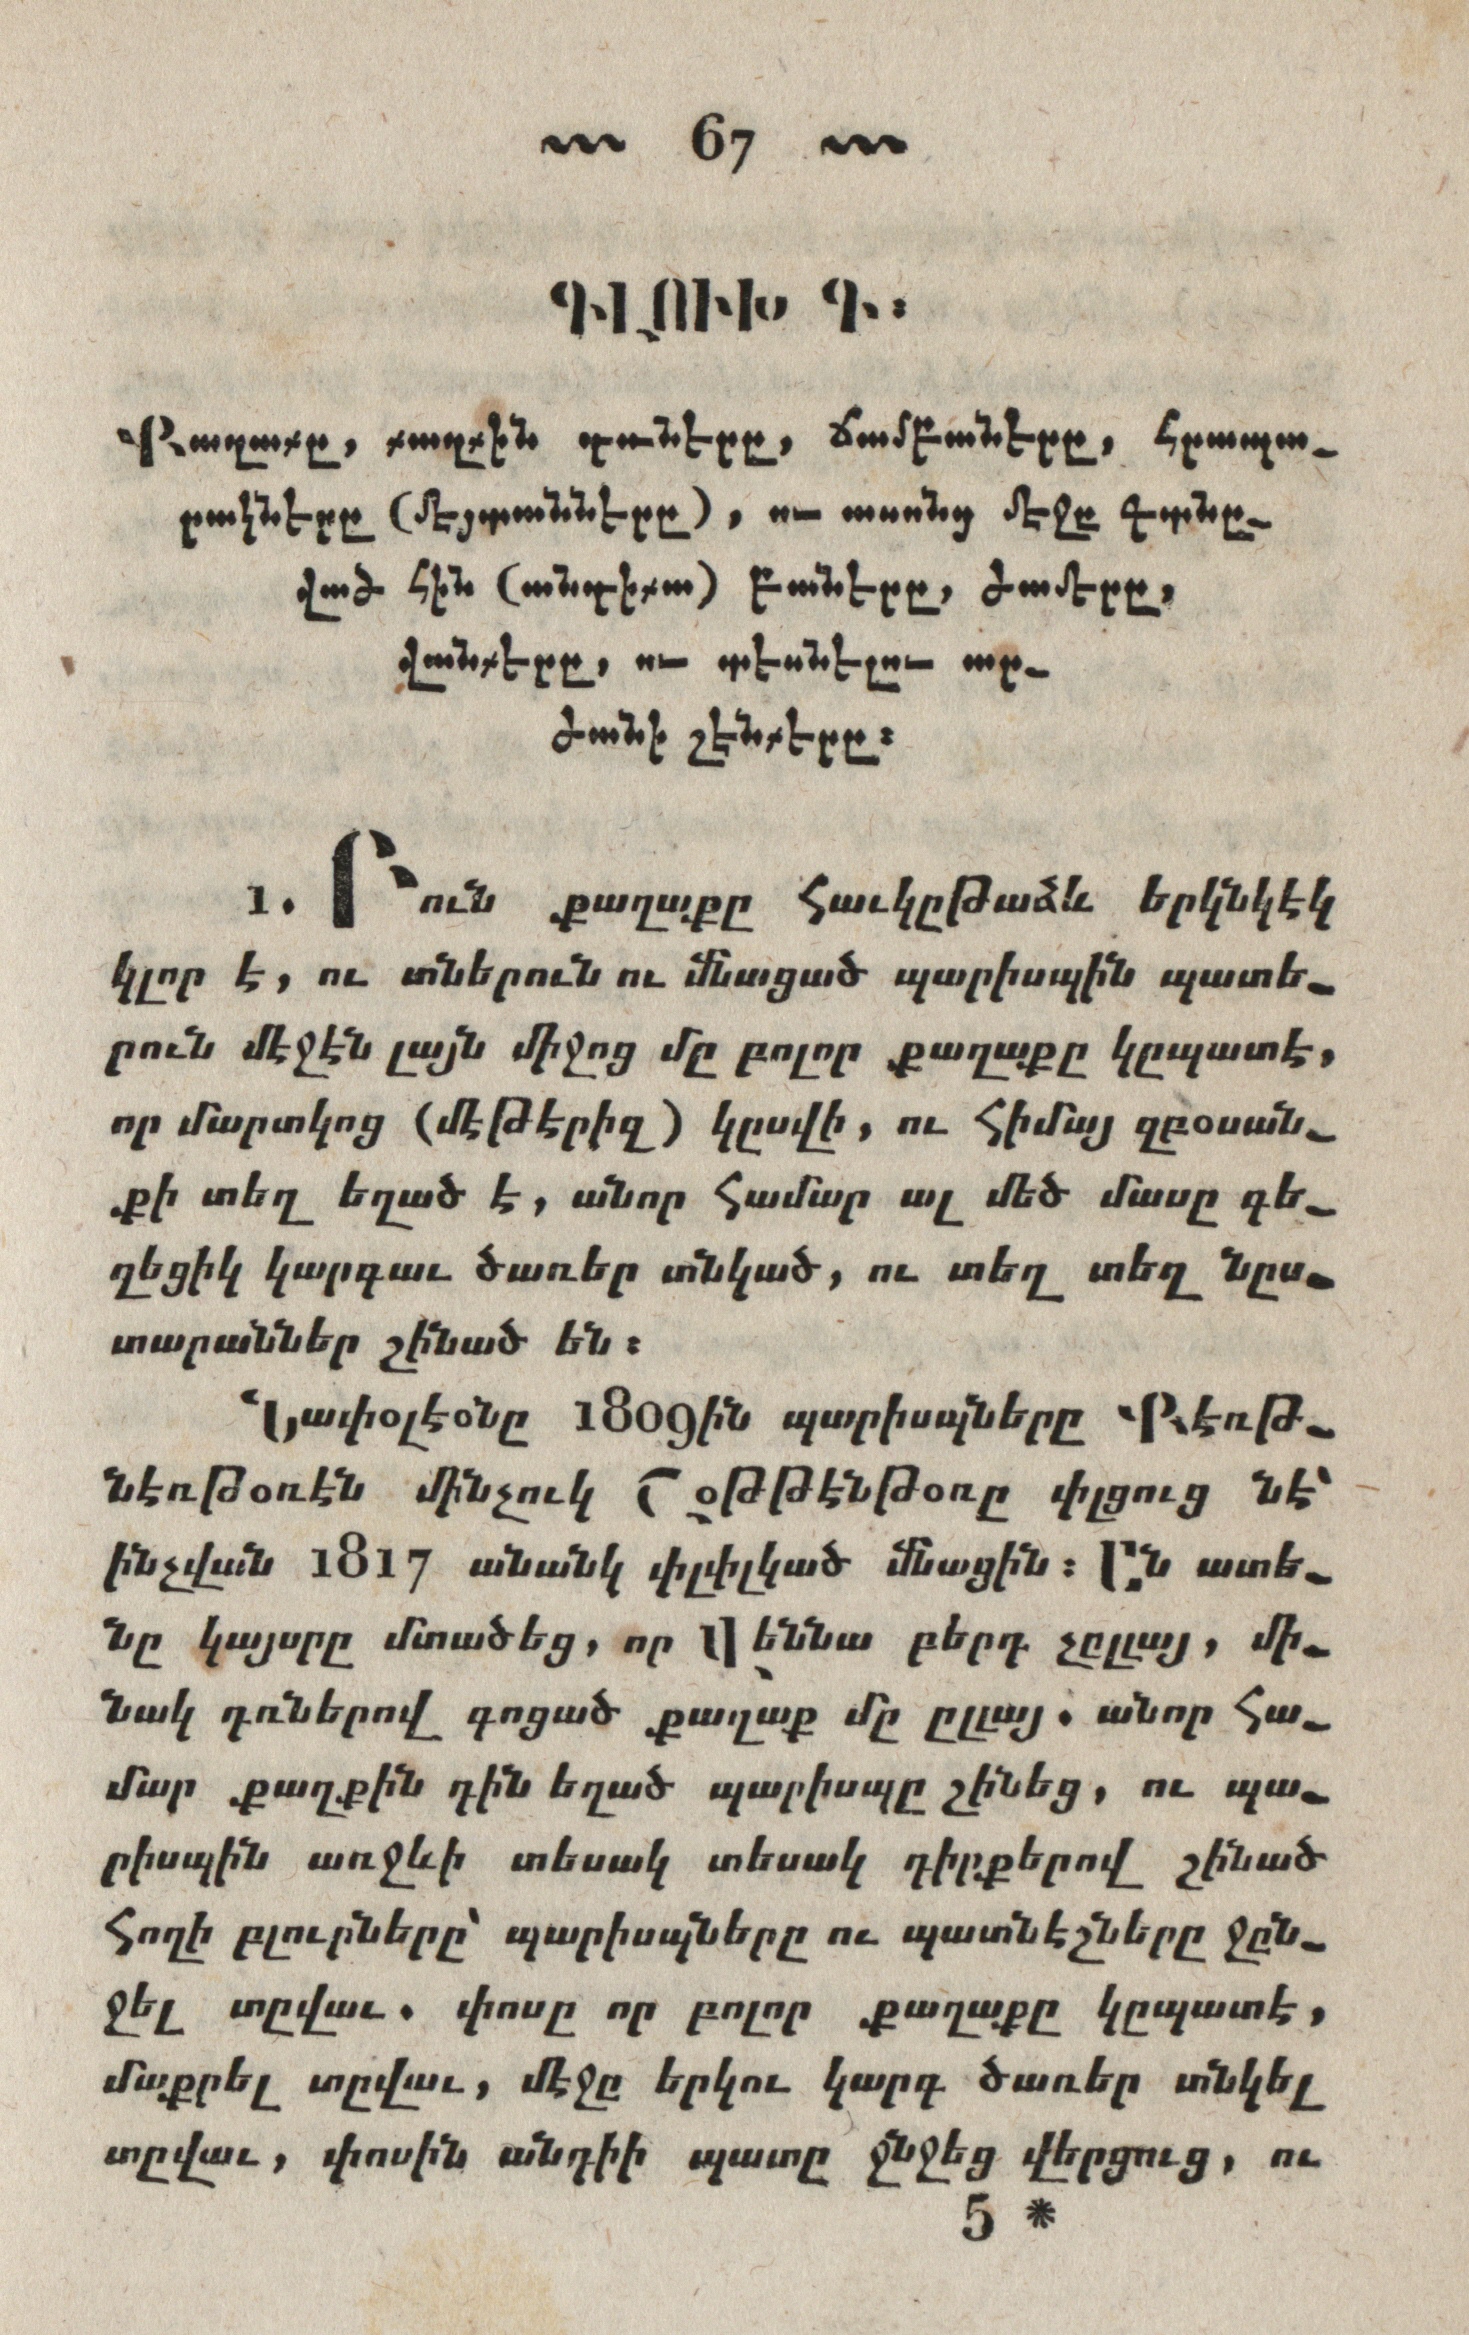 67
ԳԼՈՒԽ Գ։
Քաղաքը, քաղքին դռները, ճամբաները, հրապա֊
րակները (մէյտանները), ու ասոնց մէջը գտնը֊
ված հին (անտիքա) բաները, ժամերը,
վանքերը, ու տեսնելու ար֊
ժանի շէնքերը։
1. Բուն քաղաքը հաւկըթաձև երկնկէկ
կլոր է, ու տներուն ու մնացած պարիսպին պատե֊
րուն մէջէն լայն միջոց մը բոլոր քաղաքը կըպատէ,
որ մարտկոց (մէթէրիզ) կըսվի, ու հիմայ զբօսան֊
քի տեղ եղած է, անոր համար ալ մեծ մասը գե֊
ղեցիկ կարգաւ ծառեր տնկած, ու տեղ տեղ նըս֊
տարաններ շինած են։
Նափօլէօնը 1809ին պարիսպները Քէռթ֊
նէռթօռէն մինչուկ Շօթթէնթօռը փլցուց նէ՝
ինչվան 1817 անանկ փլփլկած մնացին։ Ըն ատե֊
նը կայսրը մտածեց, որ Վէննա բերդ չըլլայ, մի֊
նակ դռներով գոցած քաղաք մը ըլլայ. անոր հա֊
մար քաղքին դին եղած պարիսպը շինեց, ու պա֊
րիսպին առջևի տեսակ տեսակ դիրքերով շինած
հողի բլուրները՝ պարիսպները ու պատնէշները ջըն֊
ջել տըվաւ. փոսը որ բոլոր քաղաքը կըպատէ,
մաքրել տըվաւ, մէջը երկու կարգ ծառեր տնկել
տըվաւ, փոսին անդիի պատը ջնջեց վերցուց, ու
5 *